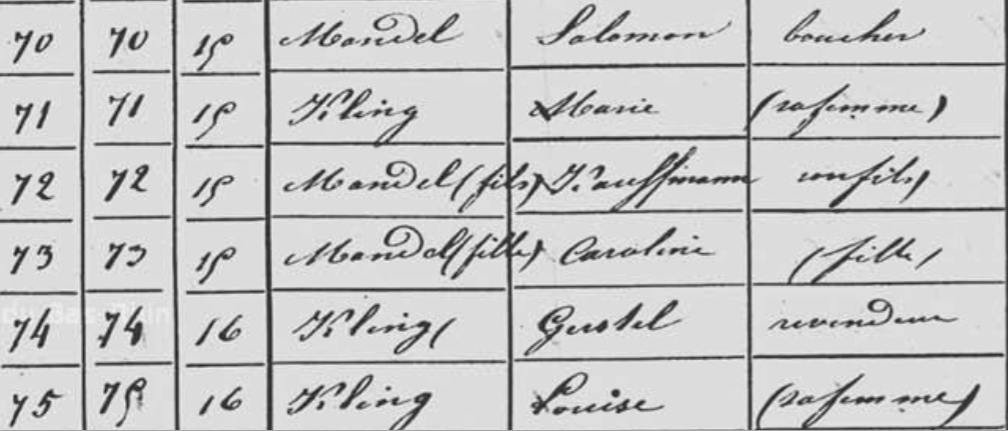 70 70 15 Mandel Salomon boucher
71 71 15 Kling Marie (sa femme)
72 72 15 Mandel (fils) Kauffmann son fils)
73 73 15 Mandel (fille) Caroline (fille)
74 74 16 Kling( Gerstel revendeur
75 75 16 Kling Louise (sa femme)